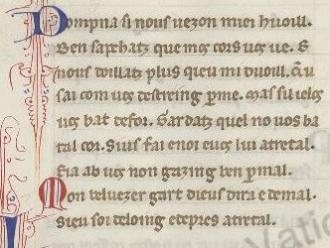 Dompna si nous uezon miei huoill.
Ben sapchatz que mos cors uos ue. E
nous doillatz plus qieu mi duoill. Qu
sai com uos destreing per me. Mas su ielos
uos bat defor. Gardatz quel no uos ba
tal cor. Sius fai enoi euos lui atretal.
Eia ab uos non gazing ben per mal.
Mon beluezer gart dieus dira e de mal.
Sieu soi deloing e de pres atretal.